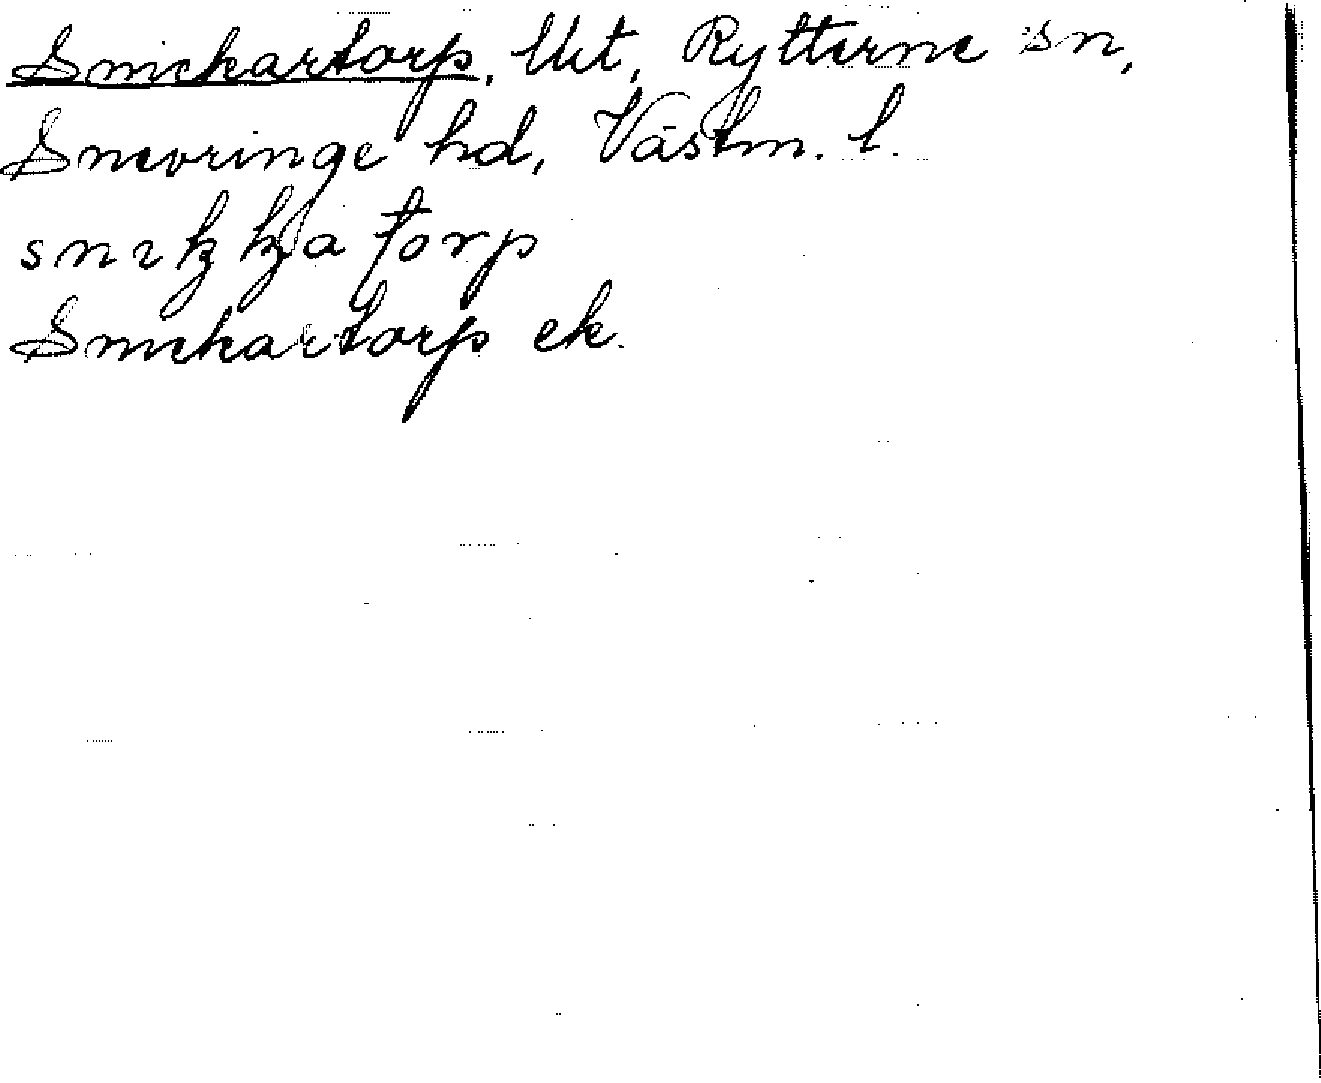 Snickartorp, Ukt, Rytterne sn,
Snevringe hd, Västm. l.
torp
Snickartorp ek.